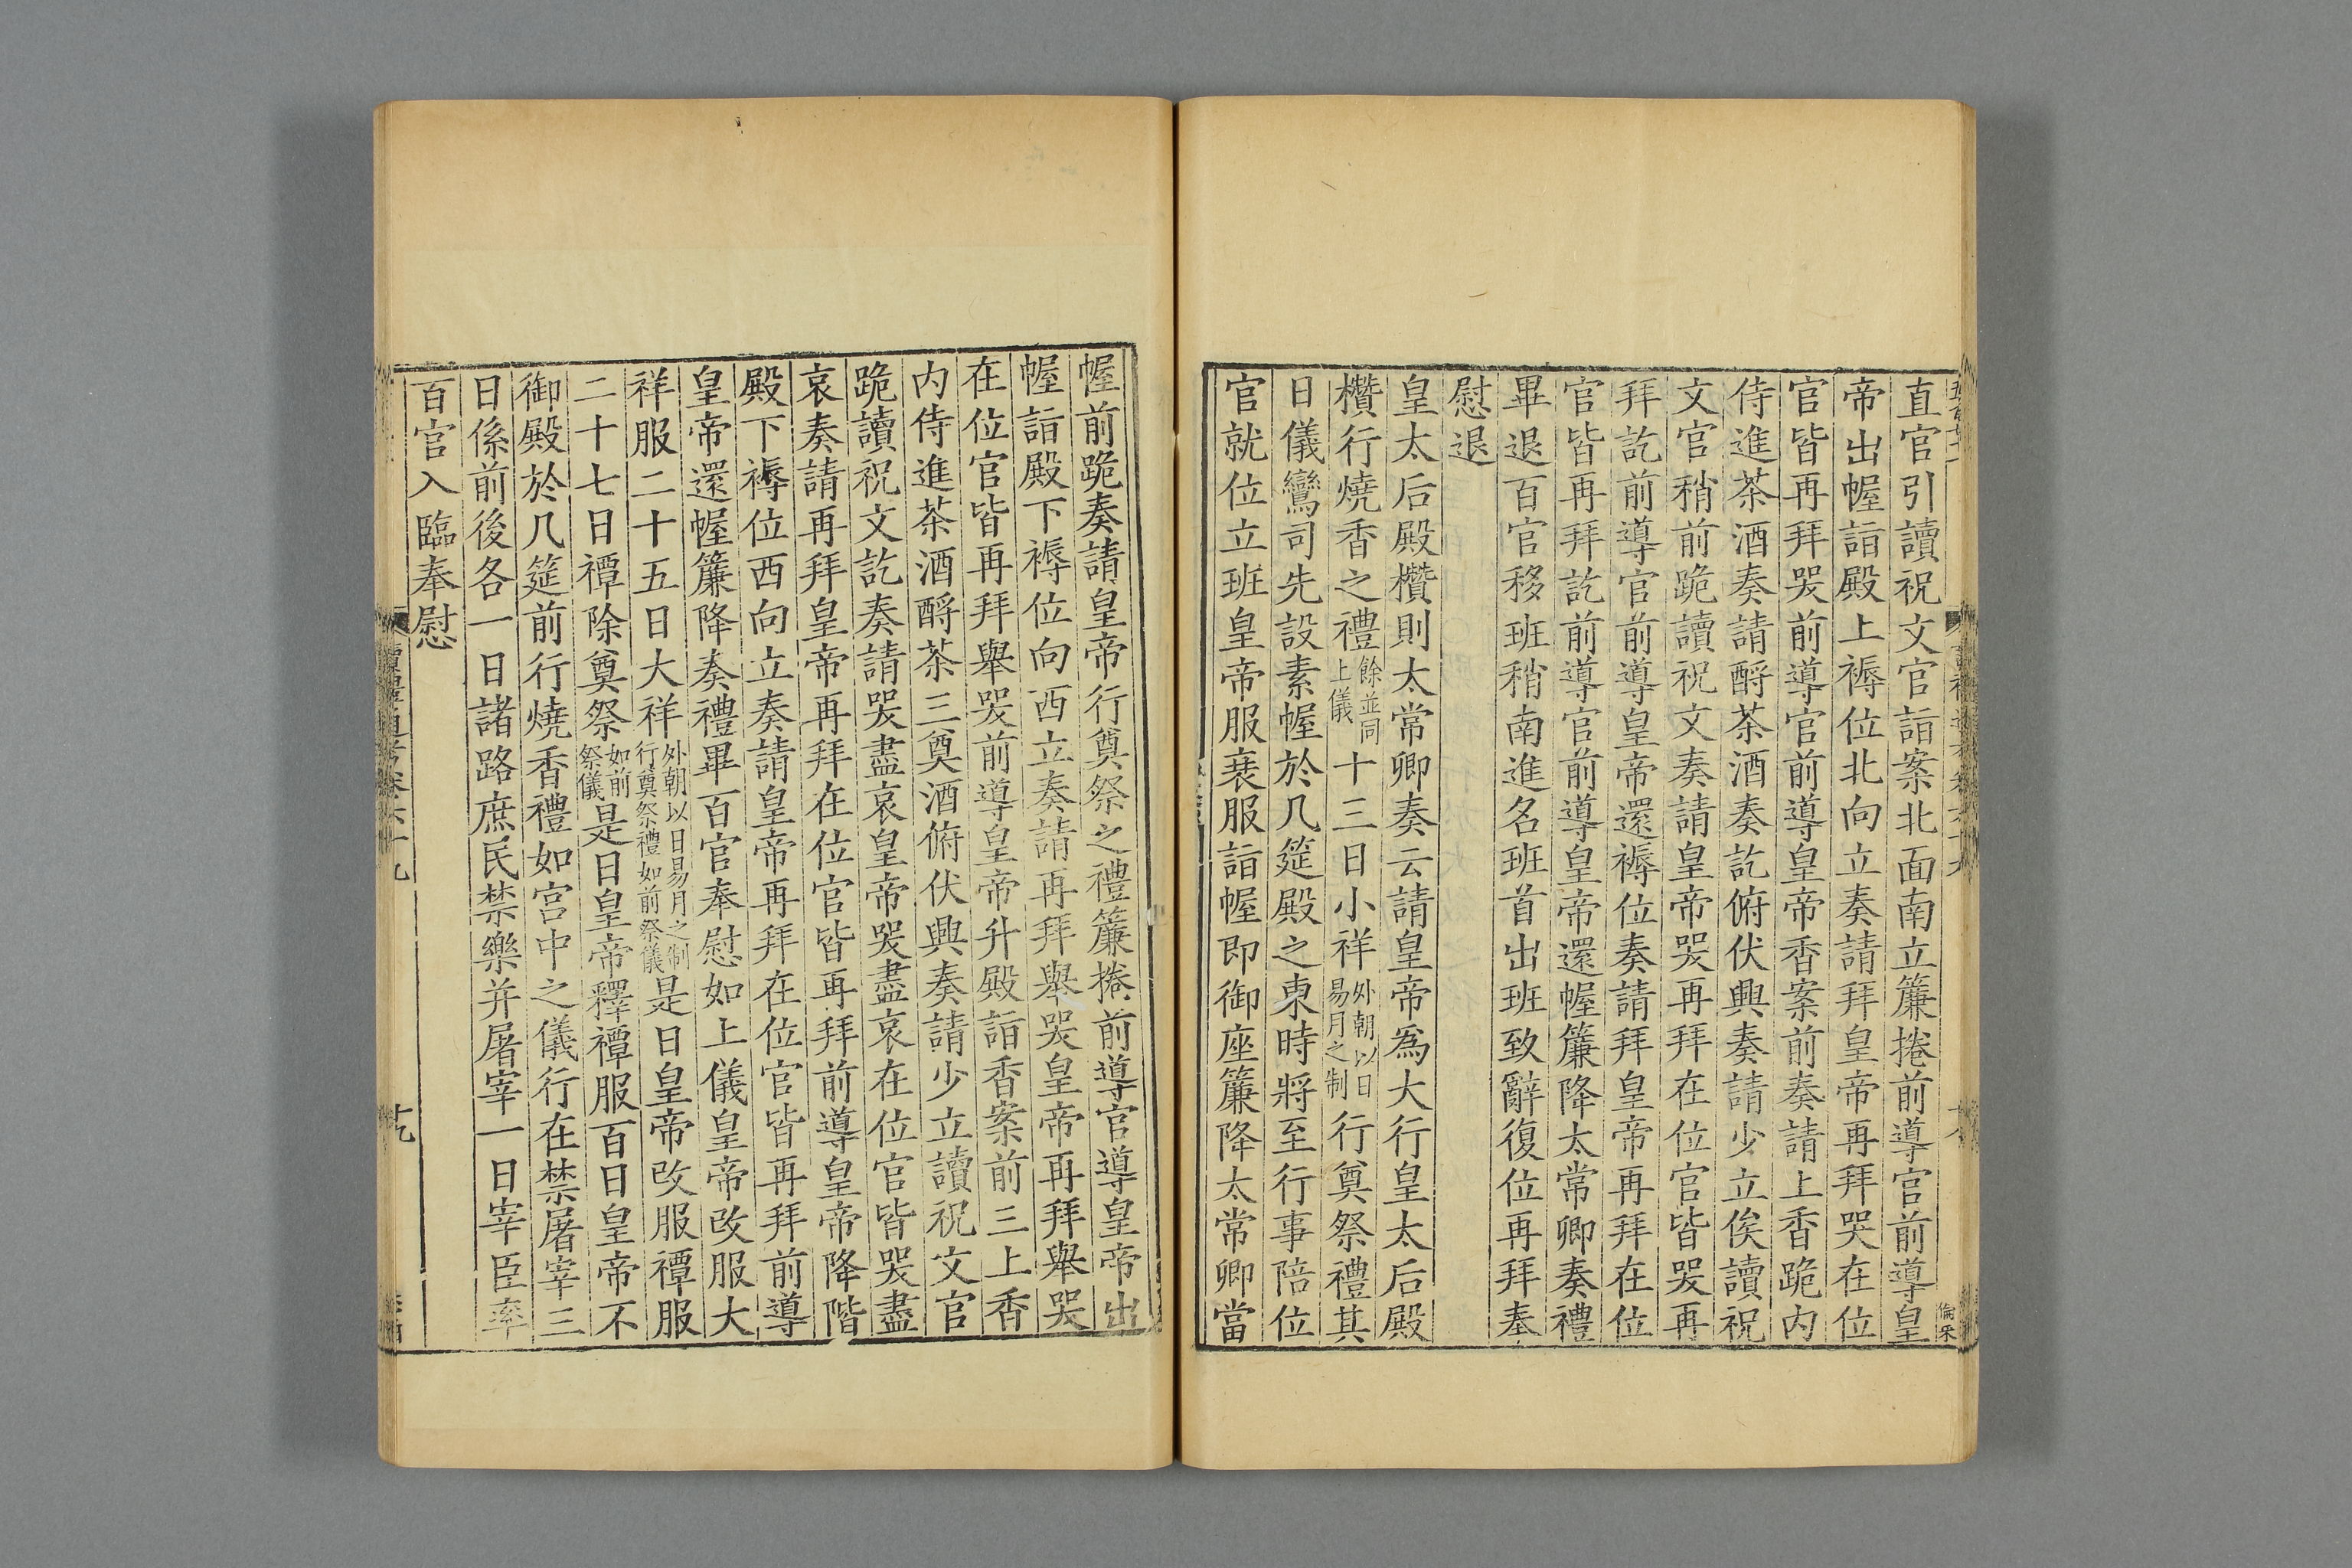 直官引讀祝文官詣案北面南立簾捲前導官前導皇
帝出幄詣殿上褥位北向立奏請拜皇帝再拜哭在位
官皆再拜哭前導官前導皇帝香案前奏請上香跪内
侍進茶酒奏請酹茶酒奏訖俯伏興奏請少立俟讀祝
文官稍前跪讀祝文奏請皇帝哭再拜在位官皆哭再
拜訖前導官前導皇帝還褥位奏請拜皇帝再拜在位
官皆再拜訖前導官前導皇帝還幄簾降太常卿奏禮
畢退百官移班稍南進名班首出班致辭復位再拜奉
慰退
皇太后殿欑則太常卿奏云請皇帝爲大行皇太后殿
欑行燒香之禮餘並同上儀十三日小祥外朝以日易月之制行奠祭禮其
日儀鸞司先設素幄於几筵殿之東時將至行事陪位
官就位立班皇帝服衰服詣幄即御座簾降太常卿當
幄前跪奏請皇帝行奠祭之禮簾捲前導官導皇帝出
幄詣殿下褥位向西立奏請再拜舉哭皇帝再拜舉哭
在位官皆再拜舉哭前導皇帝升殿詣香案前三上香
内侍進茶酒酹茶三奠酒俯伏興奏請少立讀祝文官
跪讀祝文訖奏請哭盡哀皇帝哭盡哀在位官皆哭盡
哀奏請再拜皇帝再拜在位官皆再拜前導皇帝降階
殿下褥位西向立奏請皇帝再拜在位官皆再拜前導
皇帝還幄簾降奏禮畢百官奉慰如上儀皇帝改服大
祥服二十五日大祥外朝以日易月之制行奠祭禮如前祭儀是日皇帝改服禫服
二十七日禫除奠祭如前祭儀是日皇帝釋禫服百日皇帝不
御殿於几筵前行燒香禮如宫中之儀行在禁屠宰三
日係前後各一日諸路庶民禁樂并屠宰一日宰臣率
百官入臨奉慰